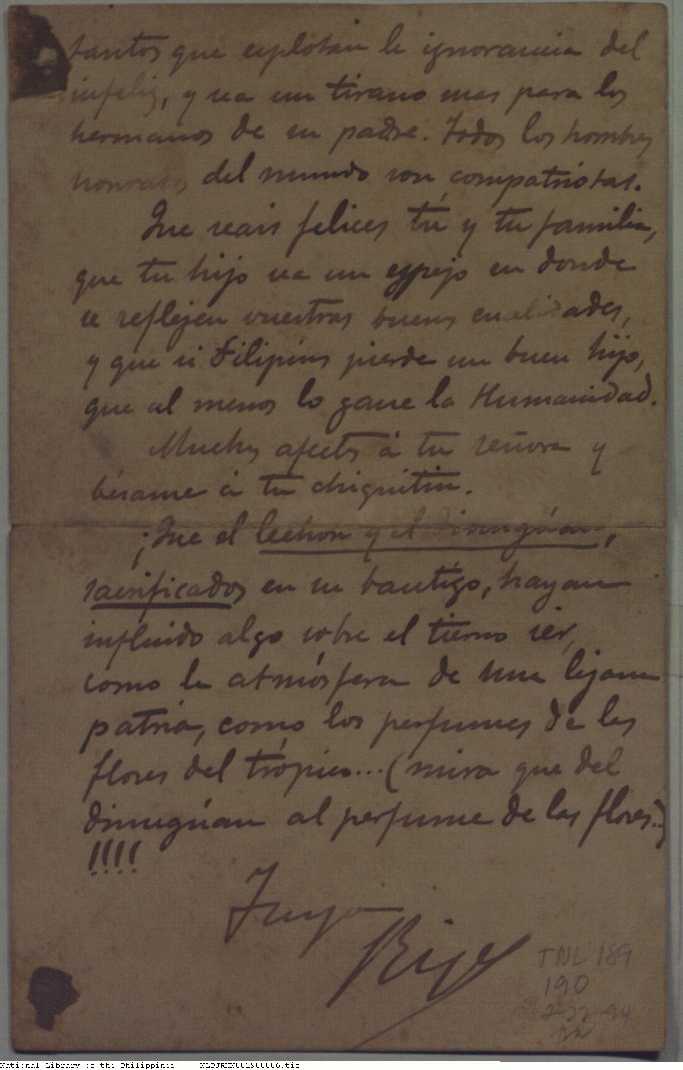 tantos que explotan la ignorancia del
infeliz, y sea un tirano mas para los
hermanos de su padre. Todos los hombres
honrados del mundo son compatriotas.
Que seais felices tú y tu familia,
que tu hijo sea un espejo en donde
se reflejen vuestras buenas cualidades,
y que si Filipinas pierde un buen hijo,
que al menos lo gane la Humanidad.
Muchos afectos á tu señora y
bésame á tu chiquitin.
¡Que el lechon y el dinuguan,
sacrificados en su bautizo, hayan
influido algo sobre el tierno ser,
como la atmósfera de una lejana
patria, como los perfumes de las
flores del trópico... (mira que del
dinugúan al perfume de las flores..)
!!!!
Tuyo
Rizal
TNL 189
190
National Library of the Philippines